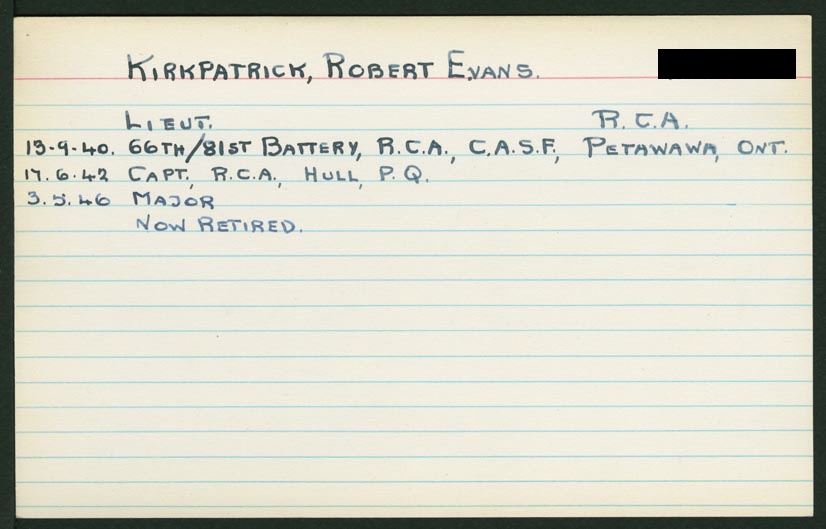 KIRKPATRICK, ROBERT EVANS.
LIEUT. R.C.A.
13-9-40. 66TH/81ST BATTERY, R.C.A., C.A.S.F., PETAWAWA, ONT.
17.6.42 CAPT., R.C.A., HULL, P.Q.
3.5.46 MAJOR
NOW RETIRED.